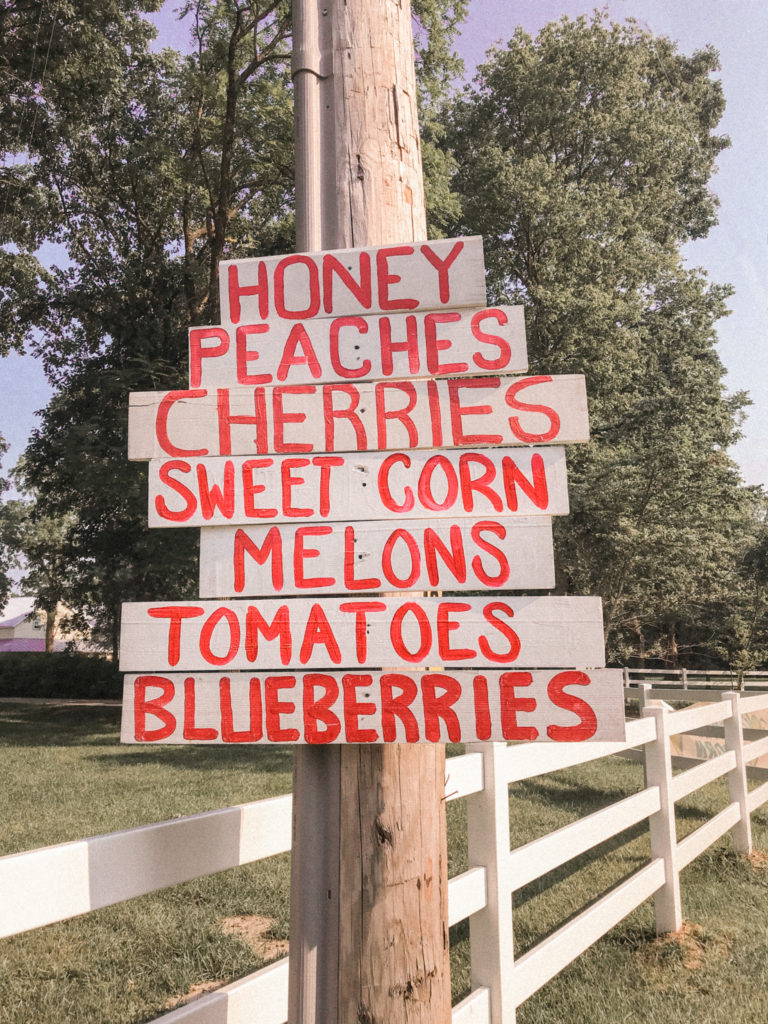 HONEY
PEACHES
CHERRIES
SWEET CORN
MELONS
TOMATOES
BLUEBERRIES